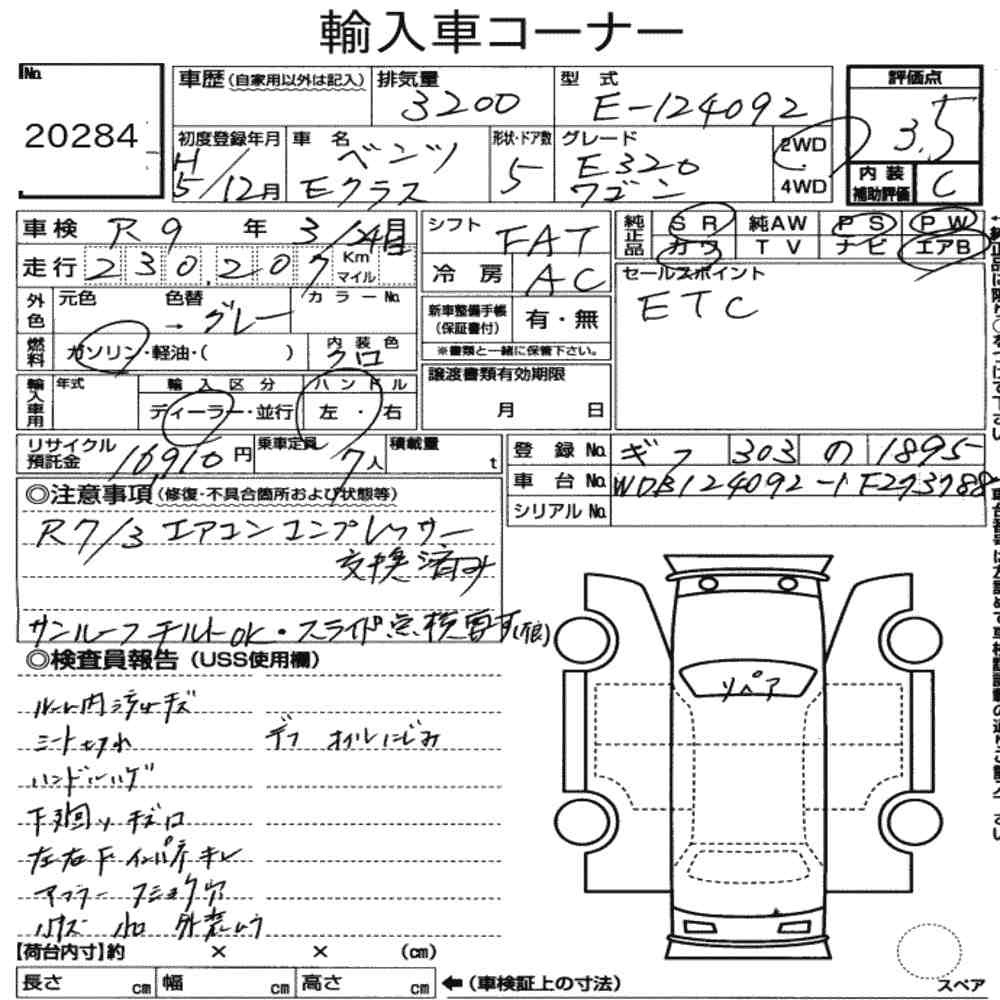 輸入車コーナー
No. 20284
車歴(自家用以外は記入)
排気量 3200
型式 E-124092
評価点 3.5
初度登録年月 H5/12月
車名 ベンツ Eクラス
形状・ドア数 5
グレード E320 ワゴン
2WD
4WD
内装補助評価 C
車検 R9年3/24日
走行 230,207 Km マイル
シフト FAT
冷房 AC
純正品 SR 純AW PS PW
カワ TV ナビ エアB
セールスポイント
ETC
外色 元色 色替 → グレー カラーNo.
燃料 ガソリン・軽油・( )
内装色 クロ
新車整備手帳(保証書付) 有・無
※書類と一緒に保管下さい。
輸入車用 年式 輸入区分 ディーラー・並行
ハンドル 左・右
譲渡書類有効期限
月 日
リサイクル預託金 16,910円
乗車定員 7人
積載量 t
登録No. ギフ 303 の 1895
車台No. WDB124092-1F273788
シリアルNo.
◎注意事項(修復・不具合箇所および状態等)
R7/3 エアコンコンプレッサー
交換済み
サンルーフ チルトOK・スライド点検
◎検査員報告(USS使用欄)
ルーム内 キズ
シート
デフ オイルにじみ
ハンドル ハゲ
下廻り キズ
左右F インパネ キレ
マフラー フショク穴
リペア
【荷台内寸】約 × × (cm)
長さ cm 幅 cm 高さ cm ←(車検証上の寸法)
スペア